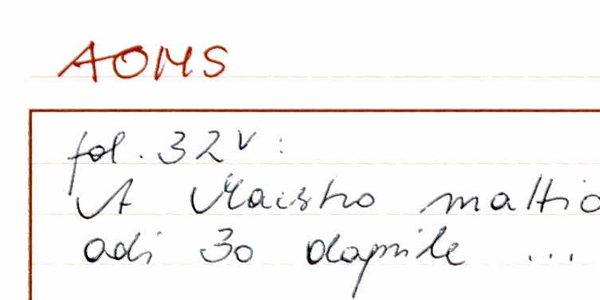 AOMS
fol. 32v:
A Maistro mattio
adi 30 daprile ...